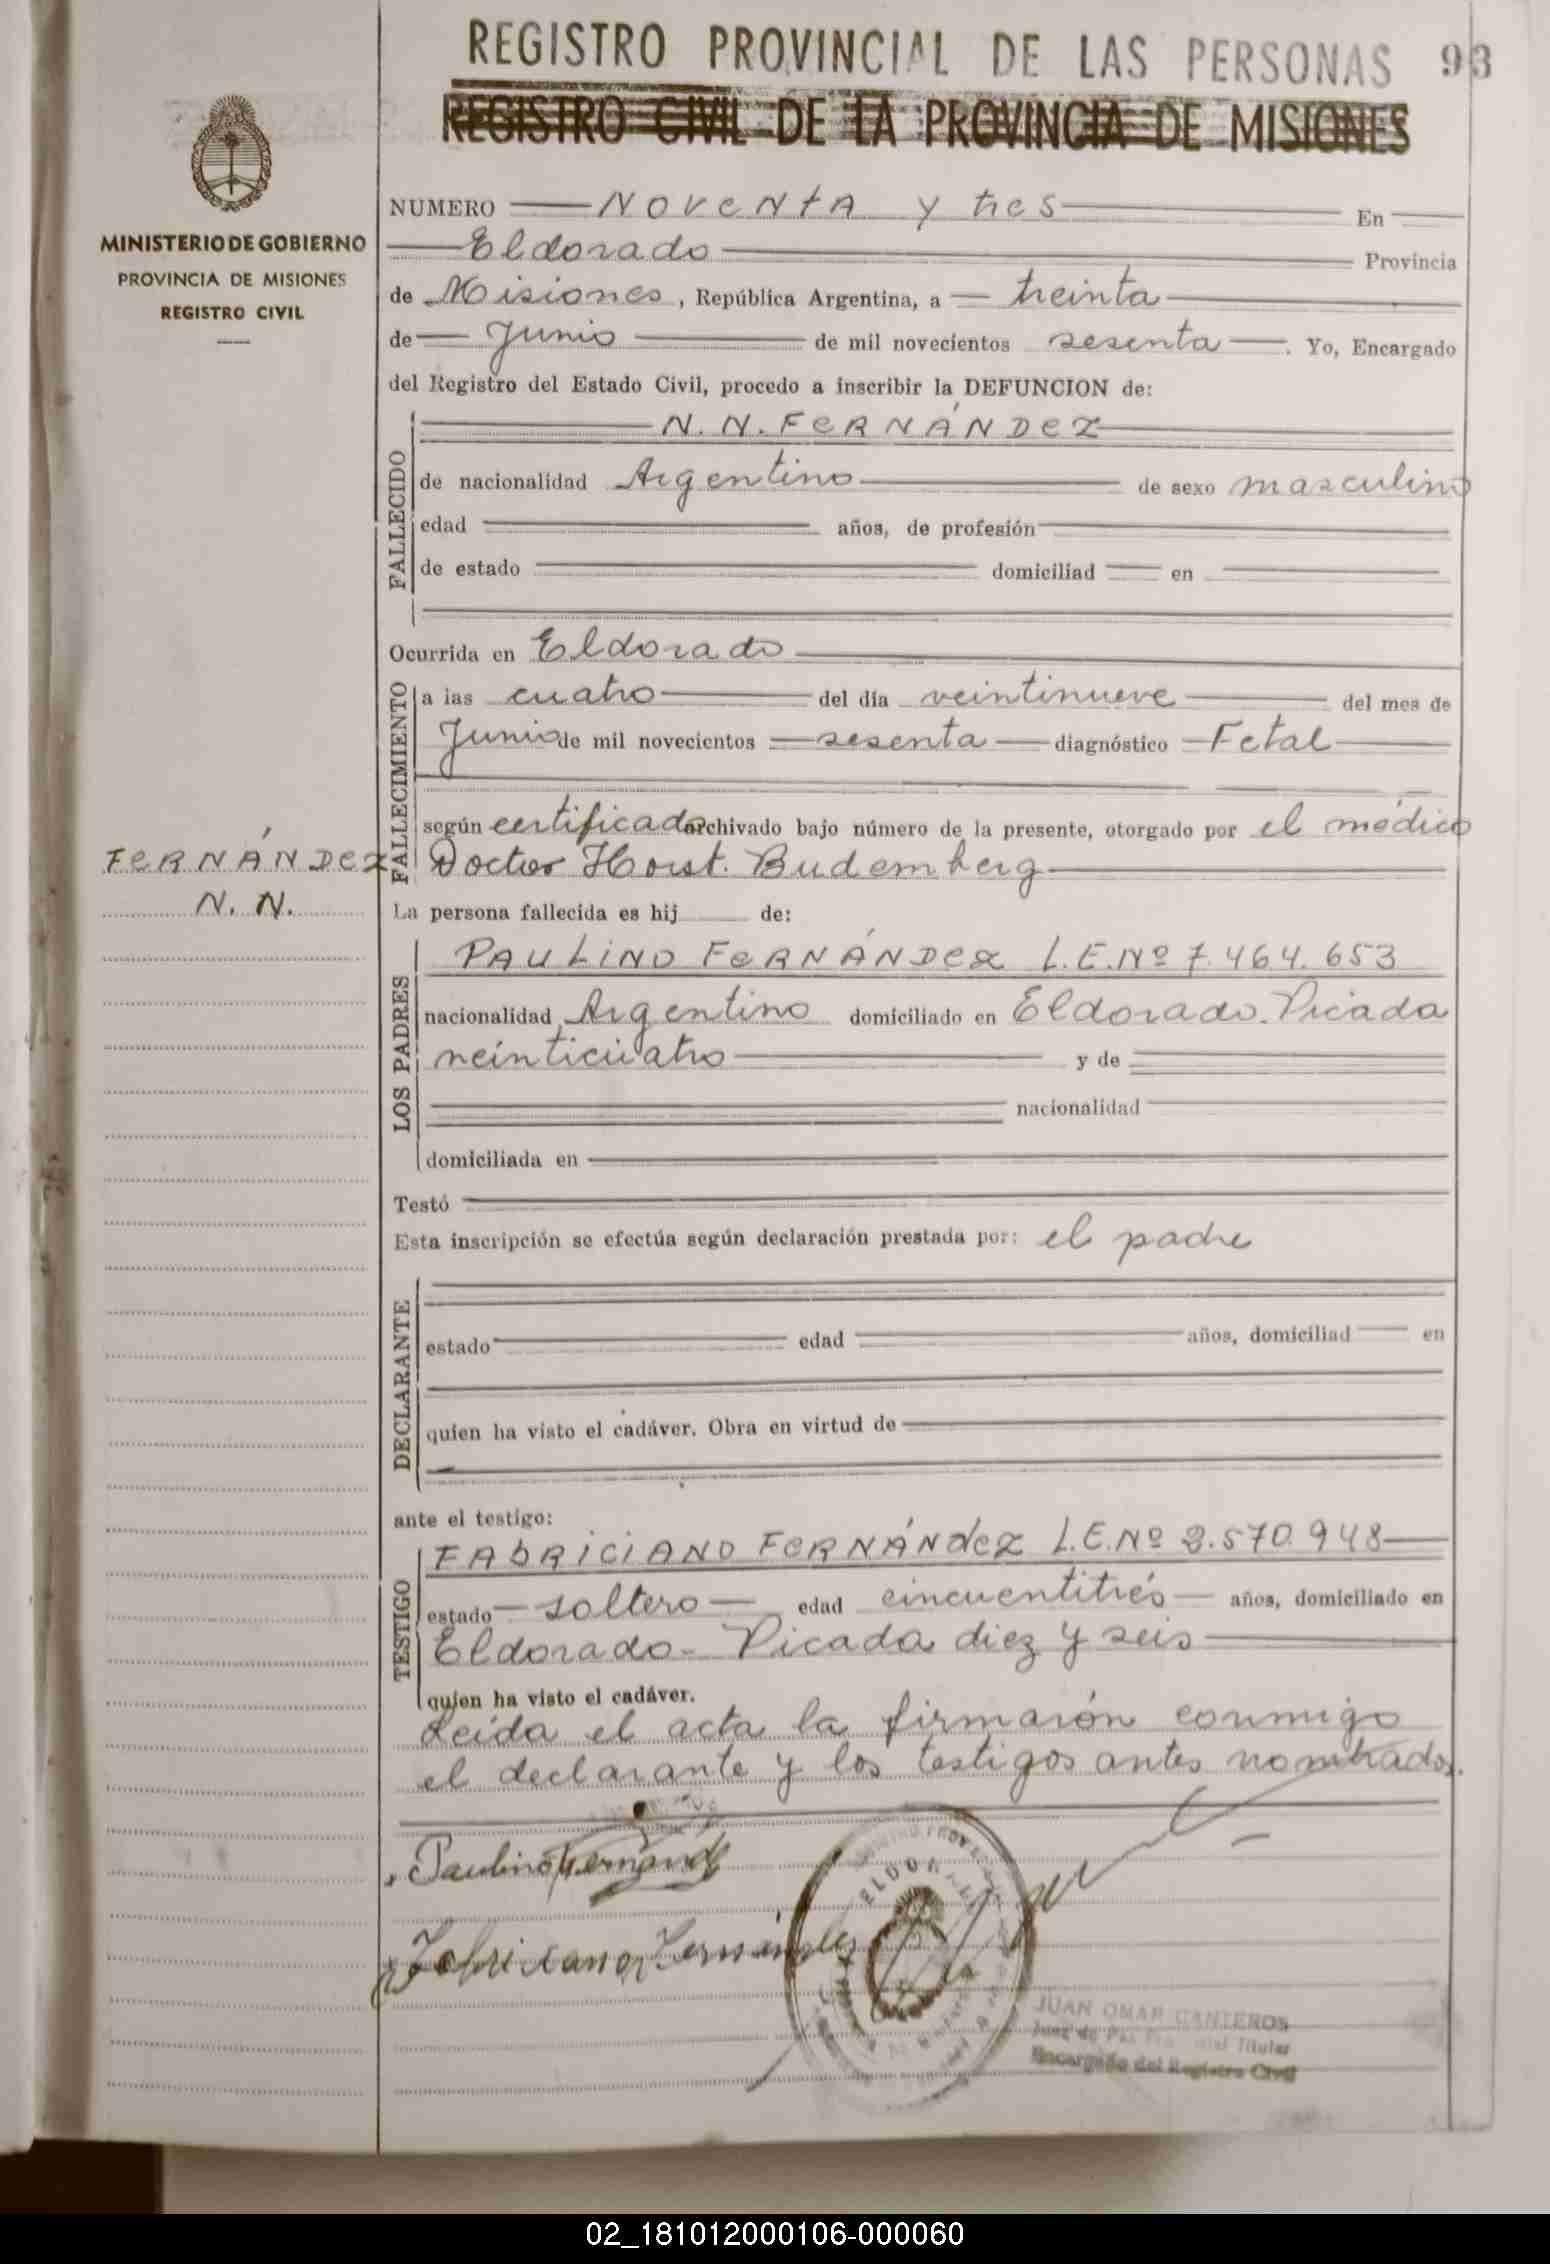 REGISTRO PROVINCIAL DE LAS PERSONAS 93
REGISTRO CIVIL DE LA PROVINCIA DE MISIONES
MINISTERIO DE GOBIERNO
PROVINCIA DE MISIONES
REGISTRO CIVIL
NUMERO Noventa y tres En
Eldorado Provincia
de Misiones, República Argentina, a treinta
de Junio de mil novecientos sesenta. Yo, Encargado
del Registro del Estado Civil, procedo a inscribir la DEFUNCION de:
FALLECIDO
N. N. FERNÁNDEZ
de nacionalidad Argentino de sexo masculino
edad años, de profesión
de estado domiciliad en
Ocurrida en Eldorado
FALLECIMIENTO
a las cuatro del día veintinueve del mes de
Junio de mil novecientos sesenta diagnóstico Fetal
según certificado archivado bajo número de la presente, otorgado por el médico
Doctor Horst. Budemberg
FERNÁNDEZ
N. N.
La persona fallecida es hij de:
LOS PADRES
PAULINO FERNÁNDEZ L.E.Nº 7.464.653
nacionalidad Argentino domiciliado en Eldorado. Picada
veinticuatro y de
nacionalidad
domiciliada en
Testó
Esta inscripción se efectúa según declaración prestada por: el padre
DECLARANTE
estado edad años, domiciliad en
quien ha visto el cadáver. Obra en virtud de
ante el testigo:
TESTIGO
FABRICIANO FERNÁNDEZ L.E.Nº 3.570.948
estado soltero edad cincuentitrés años, domiciliado en
Eldorado- Picada diez y seis
quien ha visto el cadáver.
Leída el acta la firmarón conmigo
el declarante y los testigos antes nombrados.
Paulino Fernández
Fabriciano Fernandez
ELDORADO
JUAN OMAR CANTEROS
Juez de Paz Titular
Encargado del Registro Civil
02_181012000106-000060